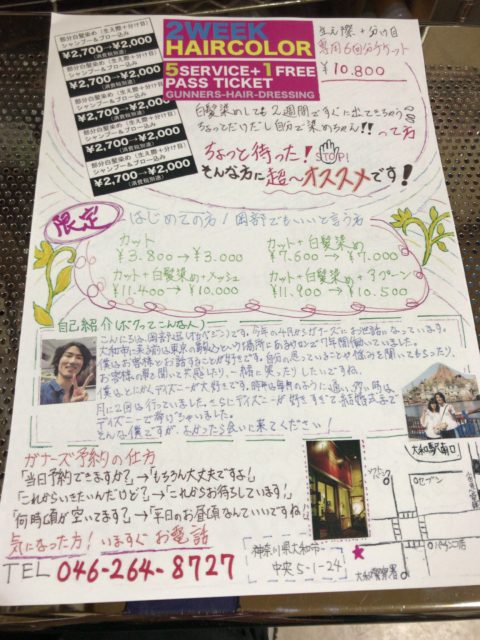 部分白髪染め(生え際+分け目)
シャンプー&ブロー込み
¥2,700→¥2,000
(消費税別途)
部分白髪染め(生え際+分け目)
シャンプー&ブロー込み
¥2,700→¥2,000
(消費税別途)
部分白髪染め(生え際+分け目)
シャンプー&ブロー込み
¥2,700→¥2,000
(消費税別途)
部分白髪染め(生え際+分け目)
シャンプー&ブロー込み
¥2,700→¥2,000
(消費税別途)
部分白髪染め(生え際+分け目)
シャンプー&ブロー込み
¥2,700→¥2,000
(消費税別途)
2WEEK
HAIRCOLOR
5SERVICE+1FREE
PASS TICKET
GUNNERS-HAIR-DRESSING
生え際+分け目
専用6回分チケット
¥10.800
白髪染めしても2週間ですぐに出てきちゃう
ちょっとだけだし自分で染めちゃん!!って方
ちょっと待った! STOP!
そんな方に超〜オススメです!
限定
はじめての方/岡部でもいいと言う方
カット
¥3.800→¥3.000
カット+白髪染め
¥7.600→¥7.000
カット+白髪染め+メッシュ
¥11.400→¥10.000
カット+白髪染め+アプーン
¥11.900→¥10.500
自己紹介(ボクってこんな人)
こんにちは岡部です。今年の4月からガナーズにお世話になっています。
大和市に来る前は東京の
僕はお客様とお話することが好きです。自分の思っていることや悩みを聞いてもらったり、
お客様の話を聞いて共感したり、一緒に笑ったりしたいですね。
僕はとにかくディズニーが大好きです。
月に2回は行っていました。さらにディズニーが好きすぎて結婚式まで
ディズニーで挙げちゃいました。
そんな僕ですが、よかったら会いに来てください!
ガナーズ予約の仕方
「当日予約できますか?」→「もちろん大丈夫ですよ!」
「これからいきたいんだけど?」→「これからお待ちしています!」
「何時頃が空いてます?」→「平日のお昼頃なんていいですね!」
気になった方! いますぐお電話
TEL 046-264-8727
神奈川県大和市
中央5-1-24
大和駅南口
セブン
大和警察署